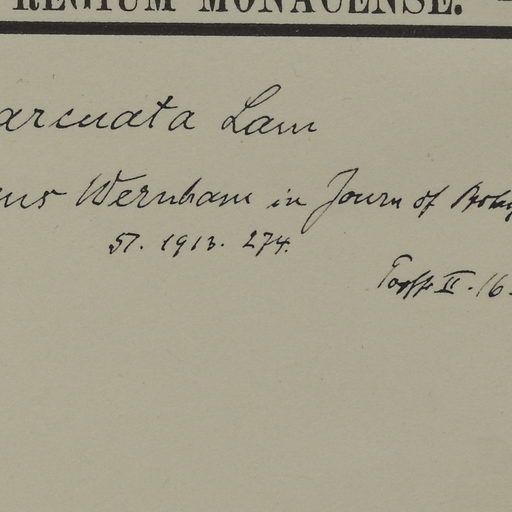 REGIUM MONACENSE.
arcuata Lam
us Wernham in Journ of Botany
51. 1913. 274.
II. 16.